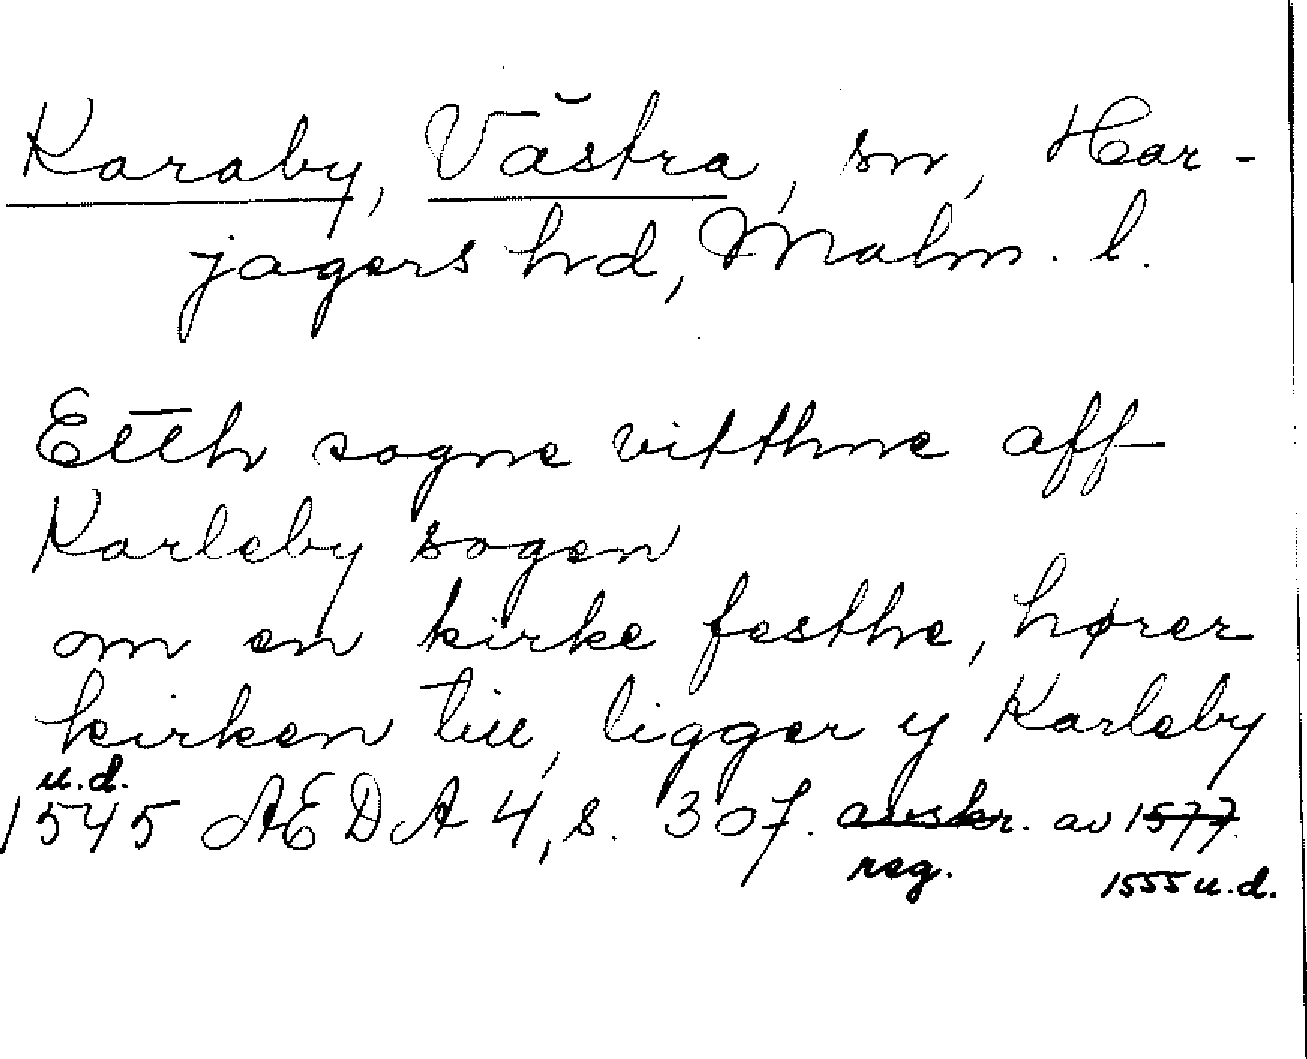 Karaby, Västra, sn, Har-
jagers hd, Malm. l.
Etth sogne vitthne aff
Karleby sogen
om en kirke festhe, hører
kirken till, ligger y Karleby
u.d.
1545 AEDA 4, s. 307. avskr. av 1577.
reg. 1555 u.d.